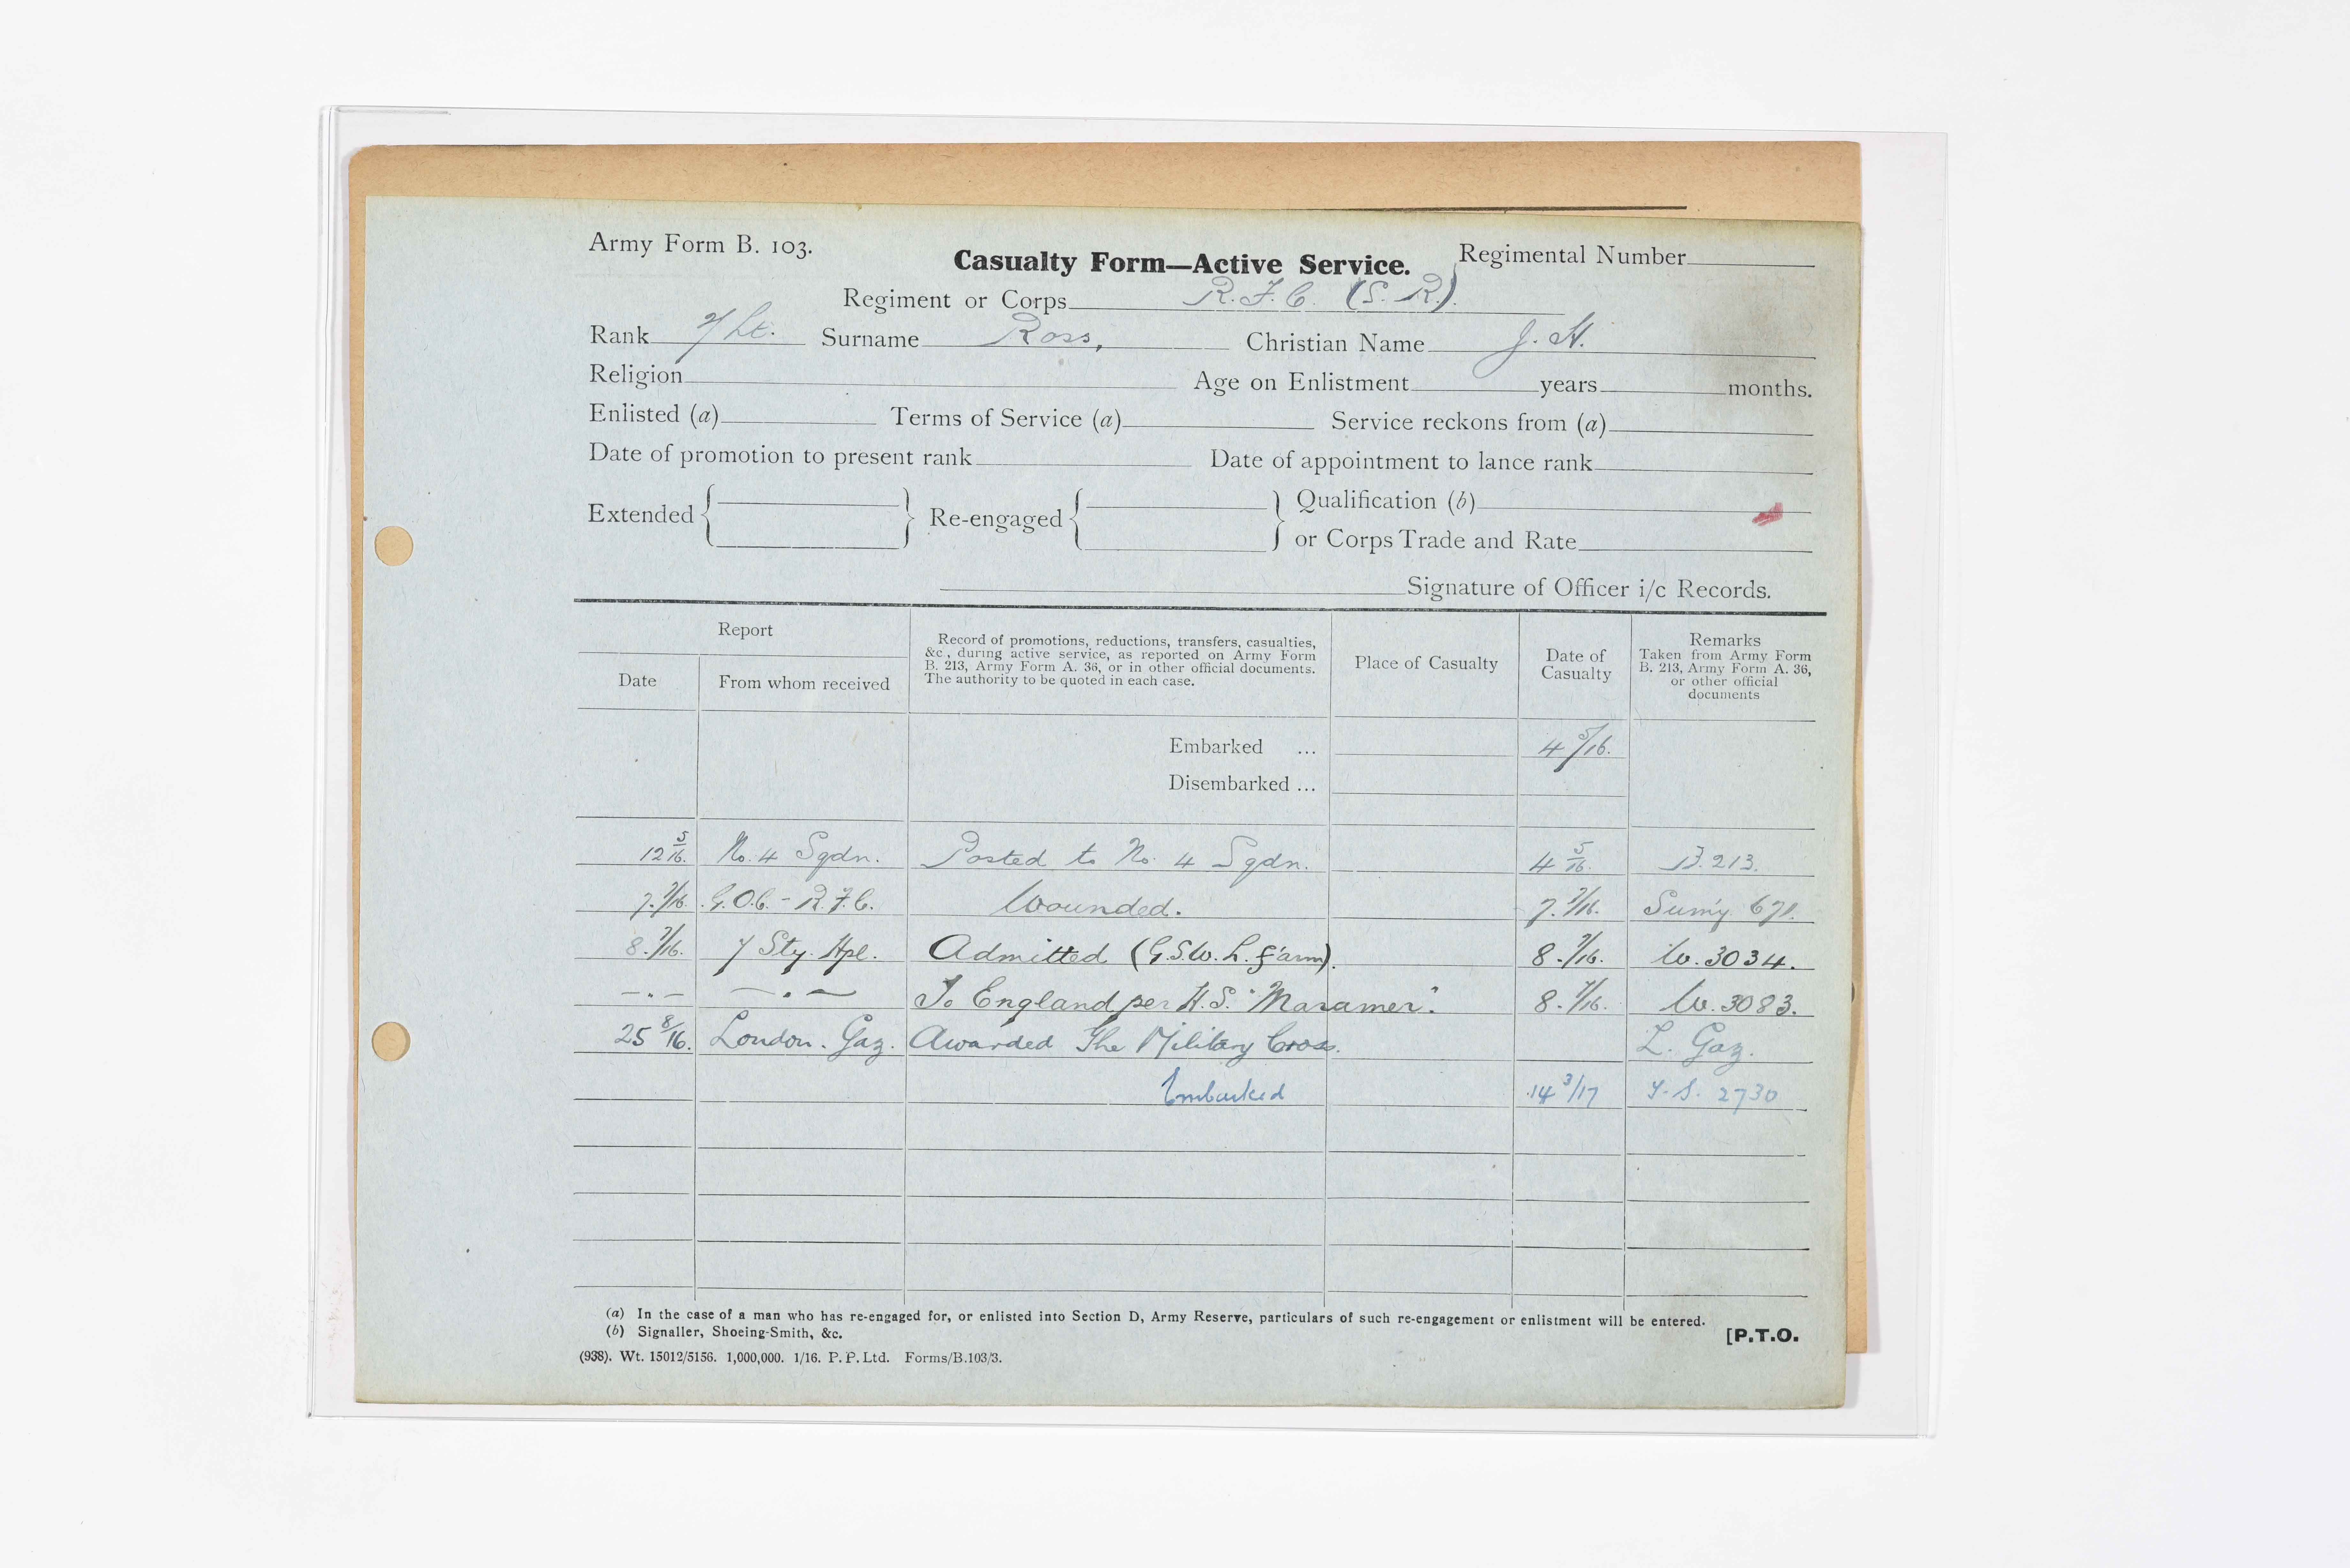 Army Form B. 103.
Casualty Form—Active Service.
Regimental Number
Regiment or Corps R.F.C. (S.R.)
Rank 2/Lt. Surname Ross, Christian Name J. H.
Religion Age on Enlistment years months.
Enlisted (a) Terms of Service (a) Service reckons from (a)
Date of promotion to present rank Date of appointment to lance rank
Extended Re-engaged Qualification (b)
or Corps Trade and Rate
Signature of Officer i/c Records.
Report
Date
From whom received
Record of promotions, reductions, transfers, casualties,
&c., during active service, as reported on Army Form
B. 213, Army Form A. 36, or in other official documents.
The authority to be quoted in each case.
Place of Casualty
Date of
Casualty
Remarks
Taken from Army Form
B. 213, Army Form A. 36,
or other official
documents
Embarked ... 4 5/16.
Disembarked ...
12 5/16. No. 4 Sqdn. Posted to No. 4 Sqdn. 4 5/16. B.213.
7. 7/16. G.O.C. - R.F.C. Wounded. 7. 7/16. Sum'y 671.
8. 7/16. 7 Sty. Hpl. Admitted (G.S.W. L. f'arm). 8. 7/16. W. 3034.
— . — — . — To England per H.S. "Maramer". 8. 7/16. W. 3083.
25 8/16. London. Gaz. Awarded The Military Cross. L. Gaz.
Embarked 14 3/17 S. 2730
(a) In the case of a man who has re-engaged for, or enlisted into Section D, Army Reserve, particulars of such re-engagement or enlistment will be entered.
(b) Signaller, Shoeing-Smith, &c.
[P.T.O.
(938). Wt. 15012/5156. 1,000,000. 1/16. P. P. Ltd. Forms/B.103/3.